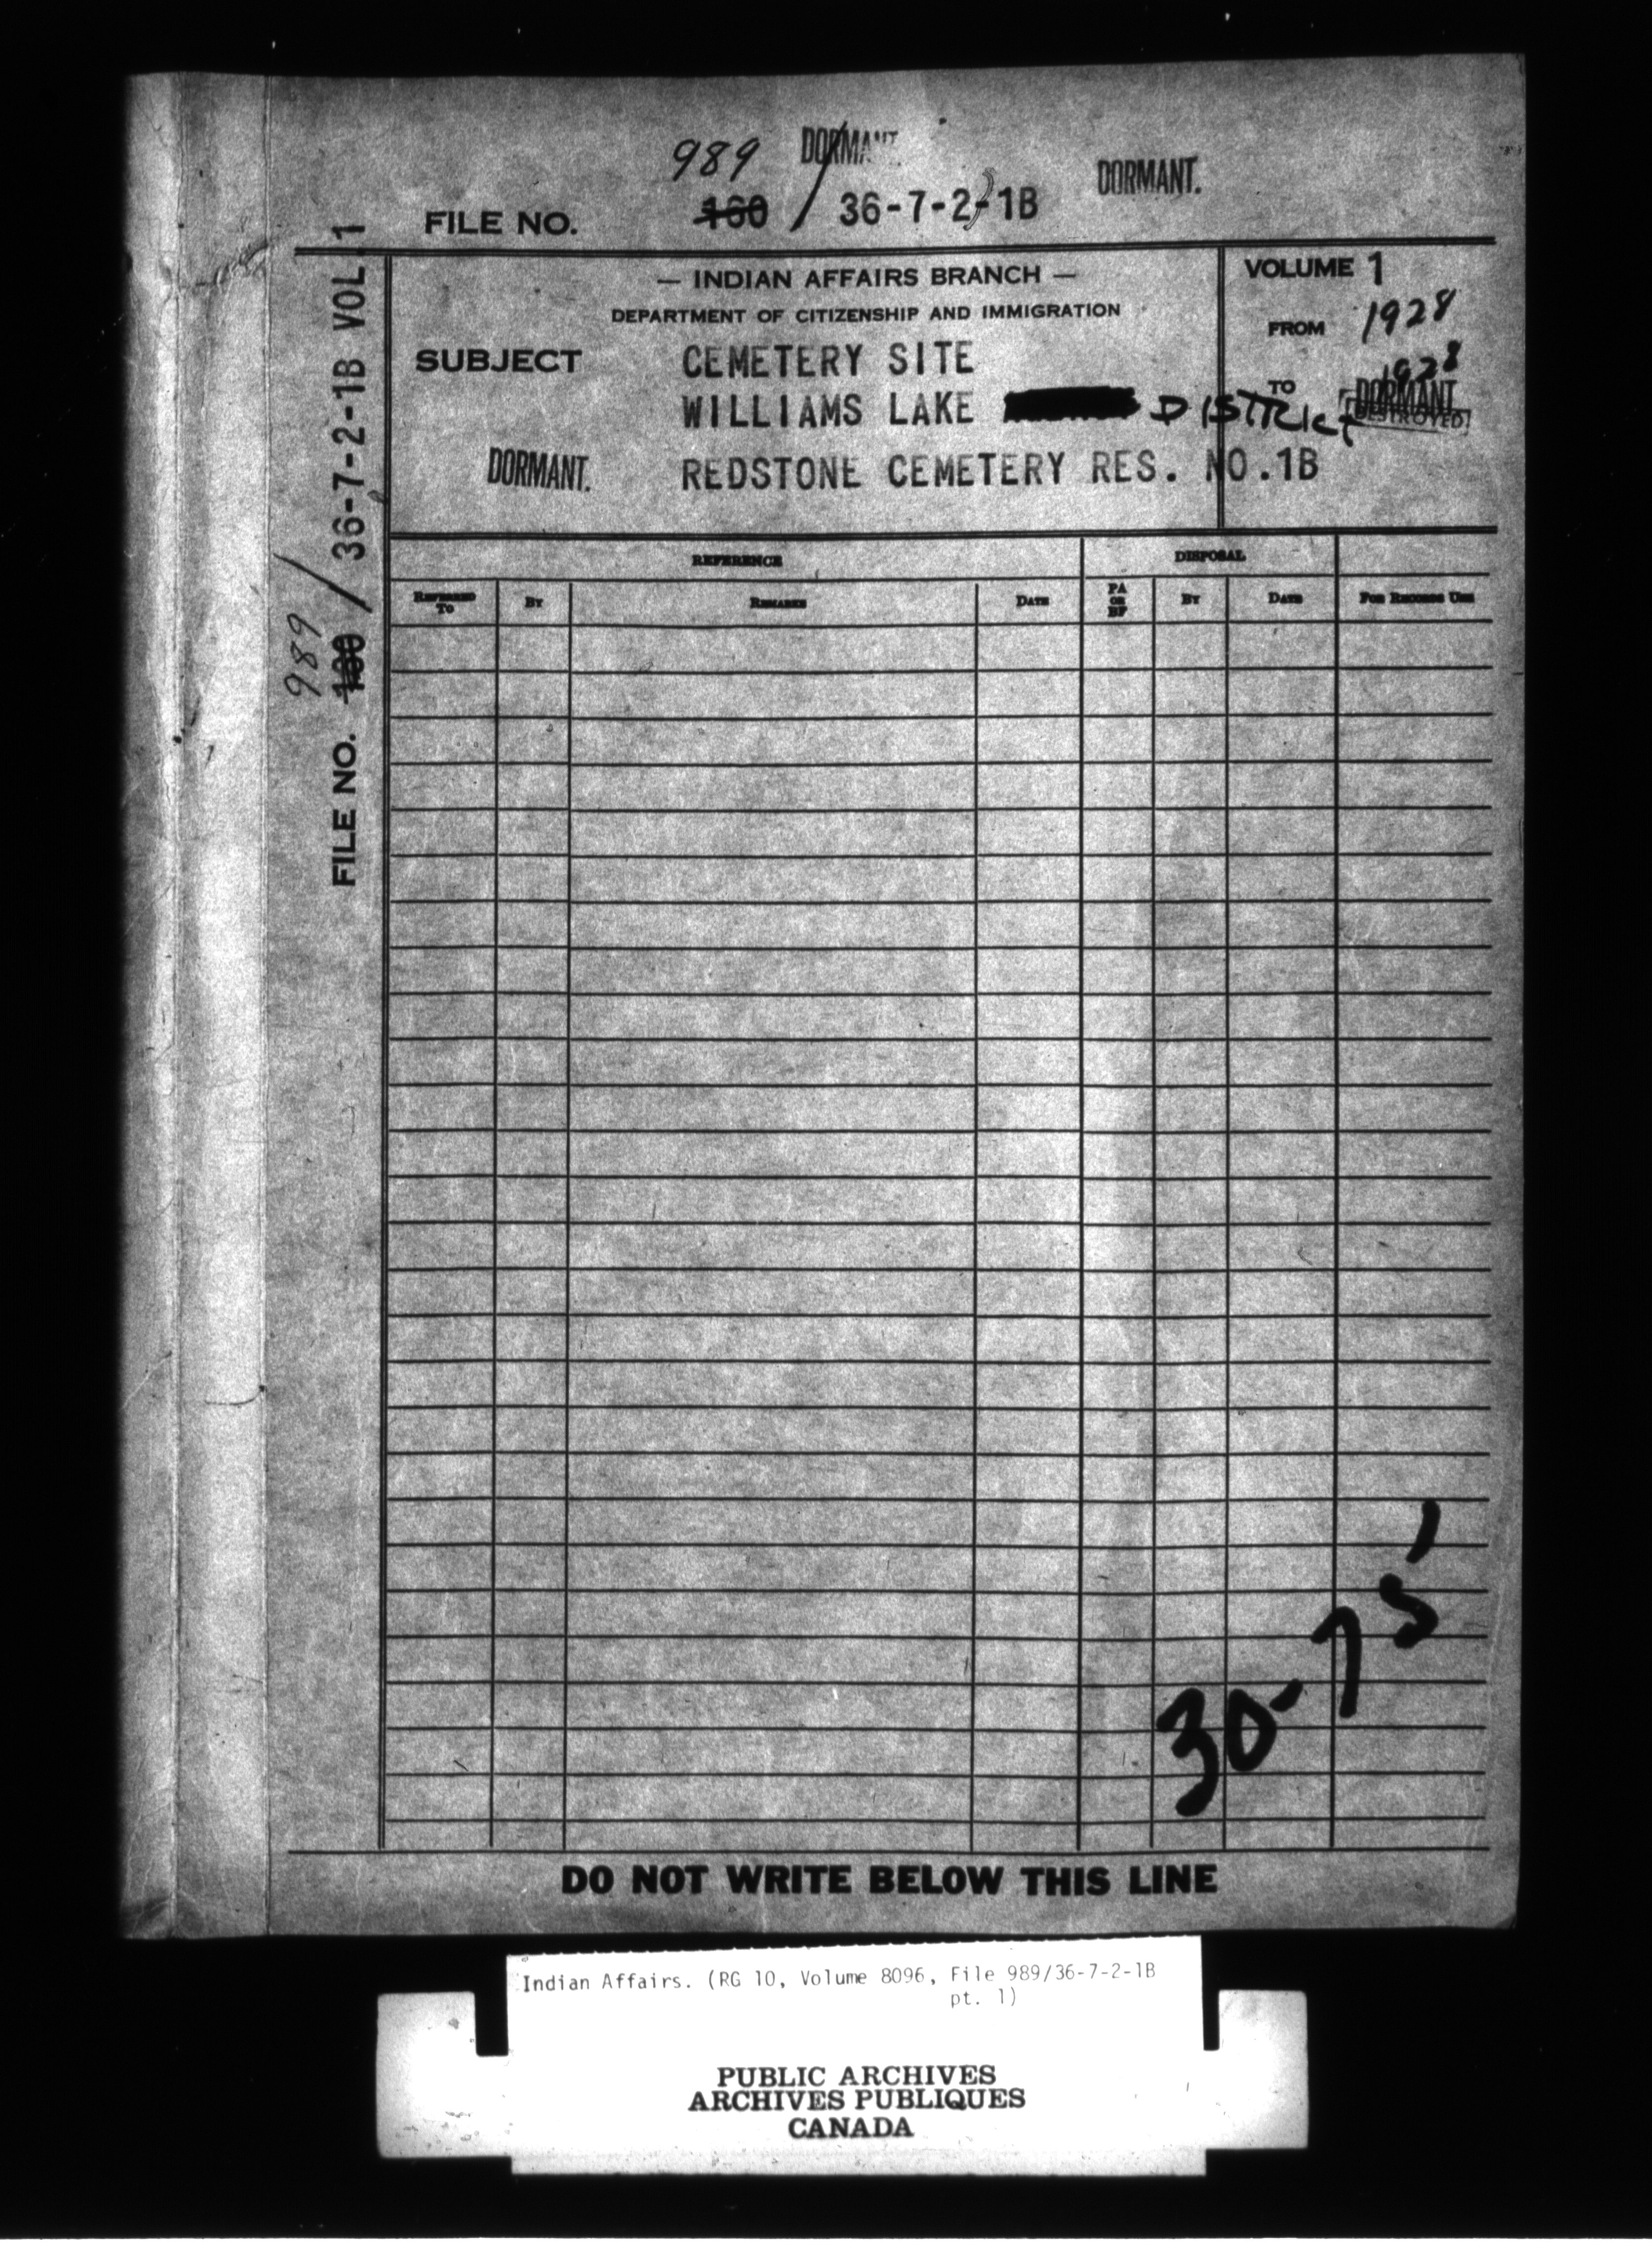 989 DORMANT.
DORMANT.
FILE NO. 160 / 36-7-2-1B
FILE NO. 160 / 36-7-2-1B VOL 1
989
— INDIAN AFFAIRS BRANCH —
DEPARTMENT OF CITIZENSHIP AND IMMIGRATION
SUBJECT CEMETERY SITE
WILLIAMS LAKE DISTRICT
DORMANT. REDSTONE CEMETERY RES. NO.1B
VOLUME 1
FROM 1928
TO 1928
DORMANT
DESTROYED
REFERENCE DISPOSAL
REFERRED TO BY REMARKS DATE PA OR BF BY DATE FOR RECORDS USE
30-75
DO NOT WRITE BELOW THIS LINE
Indian Affairs. (RG 10, Volume 8096, File 989/36-7-2-1B
pt. 1)
PUBLIC ARCHIVES
ARCHIVES PUBLIQUES
CANADA